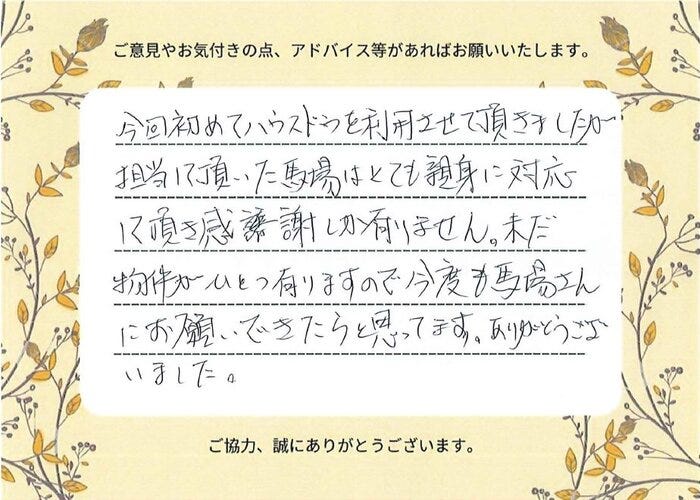 ご意見やお気付きの点、アドバイス等があればお願いいたします。
今回初めてハウスドゥを利用させて頂きましたが
担当して頂いた馬場はとても親身に対応
して頂き感謝しか有りません。未だ
物件がひとつ有りますので今度も馬場さん
にお願いできたらと思ってます。ありがとうござ
いました。
ご協力、誠にありがとうございます。